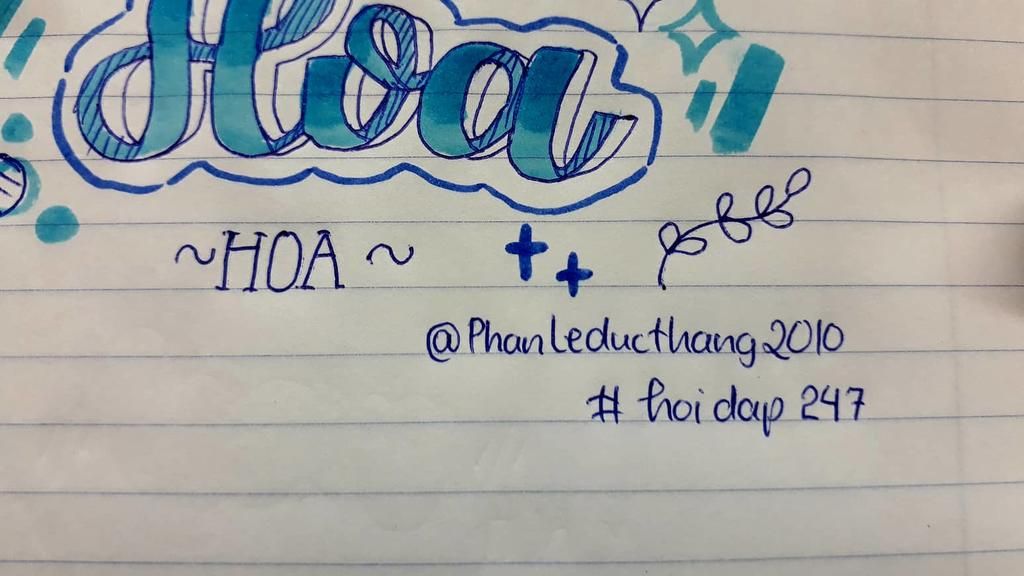 Hoa
~HOA ~
@Phanleducthang2010
# hoidap 247